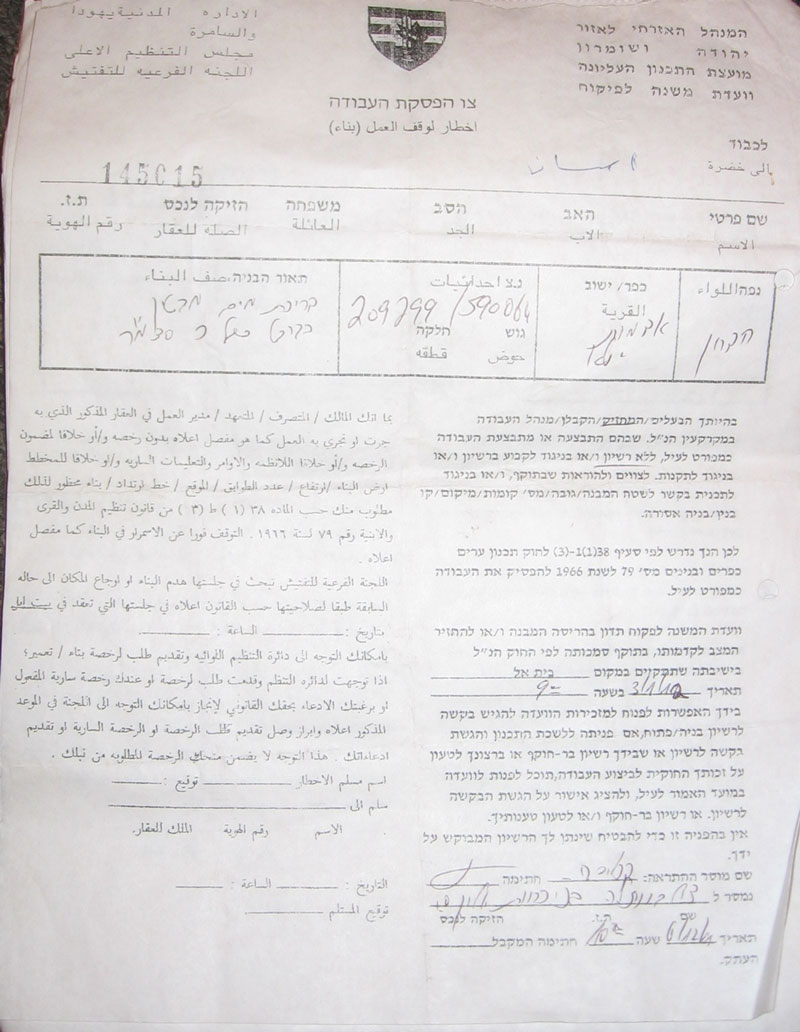 המנהל האזרחי לאזור
יהודה ושומרון
מועצת התכנון העליונה
וועדת משנה לפיקוח
الاداره المدنية يهودا
والسامرة
مجلس التنظيم الاعلى
اللجنه الفرعيه للتفتيش
צו הפסקת העבודה
اخطار لوقف العمل (بناء)
לכבוד
الى حضرة
145015
שם פרטי האב הסב משפחה הזיקה לנכס ת.ז.
الاسم الاب الجد العائلة الصله للعقار رقم الهوية
נפה اللواء
כפר/ישוב
القرية
נ.צ احداثيات
209299/590064
גוש חלקה
حوض قطعه
תאור הבניה،صف البناء
בריכת מים
בהיותך הבעלים/המחזיק/הקבלן/מנהל העבודה
במקרקעין הנ"ל, שבהם התבצעה או מתבצעת העבודה
כמפורט לעיל, ללא רשיון ו/או בניגוד לקבוע ברשיון ו/או
בניגוד לתקנות, לצווים ולהוראות שבתוקף, ו/או בניגוד
לתכנית בקשר לשטח המבנה/גובה/מס' קומות/מיקום/קו
בנין/בניה אסורה.
לכן הנך נדרש לפי סעיף 38(1)-(3) לחוק תכנון ערים
כפרים ובנינים מס' 79 לשנת 1966 להפסיק את העבודה
כמפורט לעיל.
וועדת המשנה לפקוח תדון בהריסה המבנה ו/או להחזיר
המצב לקדמותו, בתוקף סמכותה לפי החוק הנ"ל
בישיבתה שתתקיים במקום בית אל
תאריך 3/1/12 בשעה 9-
בידך האפשרות לפנות למזכירות הוועדה להגיש בקשה
לרשיון בניה/פתוח, אם פניתה ללשכת התכנון והגשת
בקשה לרשיון או שבידך רשיון בר-תוקף או ברצונך לטעון
על זכותך החוקית לביצוע העבודה, תוכל לפנות לוועדה
במועד האמור לעיל, ולהציג אישור על הגשת הבקשה
לרשיון, או רשיון בר-תוקף ו/או לטעון טענותיך.
אין בהפניה זו כדי להבטיח שינתן לך הרשיון המבוקש על
ידך.
שם מוסר ההתראה: חתימה
נמסר ל
שם ת.ז. הזיקה לנכס
תאריך שעה חתימה המקבל
העתק.
بما انك المالك / المتصرف / المتعهد / مدير العمل في العقار المذكور الذي به
جرت او تجري به العمل كما هو مفصل اعلاه بدون رخصه و/أو خلافا لمضمون
الرخصه و/أو خلافا للانظمه والاوامر والتعليمات الساريه و/او خلافا للمخطط
ارض البناء /ارتفاع / عدد الطوابق / الموقع / خط ارتداد / بناء محظور لذلك
مطلوب منك حسب الماده ٣٨ (١) ط (٣) من قانون تنظيم المدن والقرى
والابنية رقم ٧٩ لسنة ١٩٦٦ . التوقف فورا عن الاسمرار في البناء كما مفصل
اعلاه .
اللجنة الفرعية للتفتيش تبحث في جلستها هدم البناء او ارجاع المكان الى حاله
السابقة طبقا لصلاحيتها حسب القانون اعلاه في جلستها التي تعقد في بيت ايل
بتاريخ : الساعة :
بامكانك التوجه الى دائرة التنظيم اللوائيه وتقديم طلب لرخصة بناء / تعمير؛
اذا توجهت لدائره التنظم وقدمت طلب لرخصة او عندك رخصة سارية المفعول
او برغبتك الادعاء بحقك القانوني لإنجاز بامكانك التوجه الى اللجنة في الموعد
المذكور اعلاه وابراز وصل تقديم طلب الرخصة او الرخصة السارية او تقديم
ادعاءاتك . هذا التوجه لا يضمن منحك الرخصة المطلوبه من قبلك .
اسم مسلم الاخطار توقيع :
سلم الى
الاسم رقم الهوية الملك للعقار.
التاريخ : الساعة :
توقيع المستلم